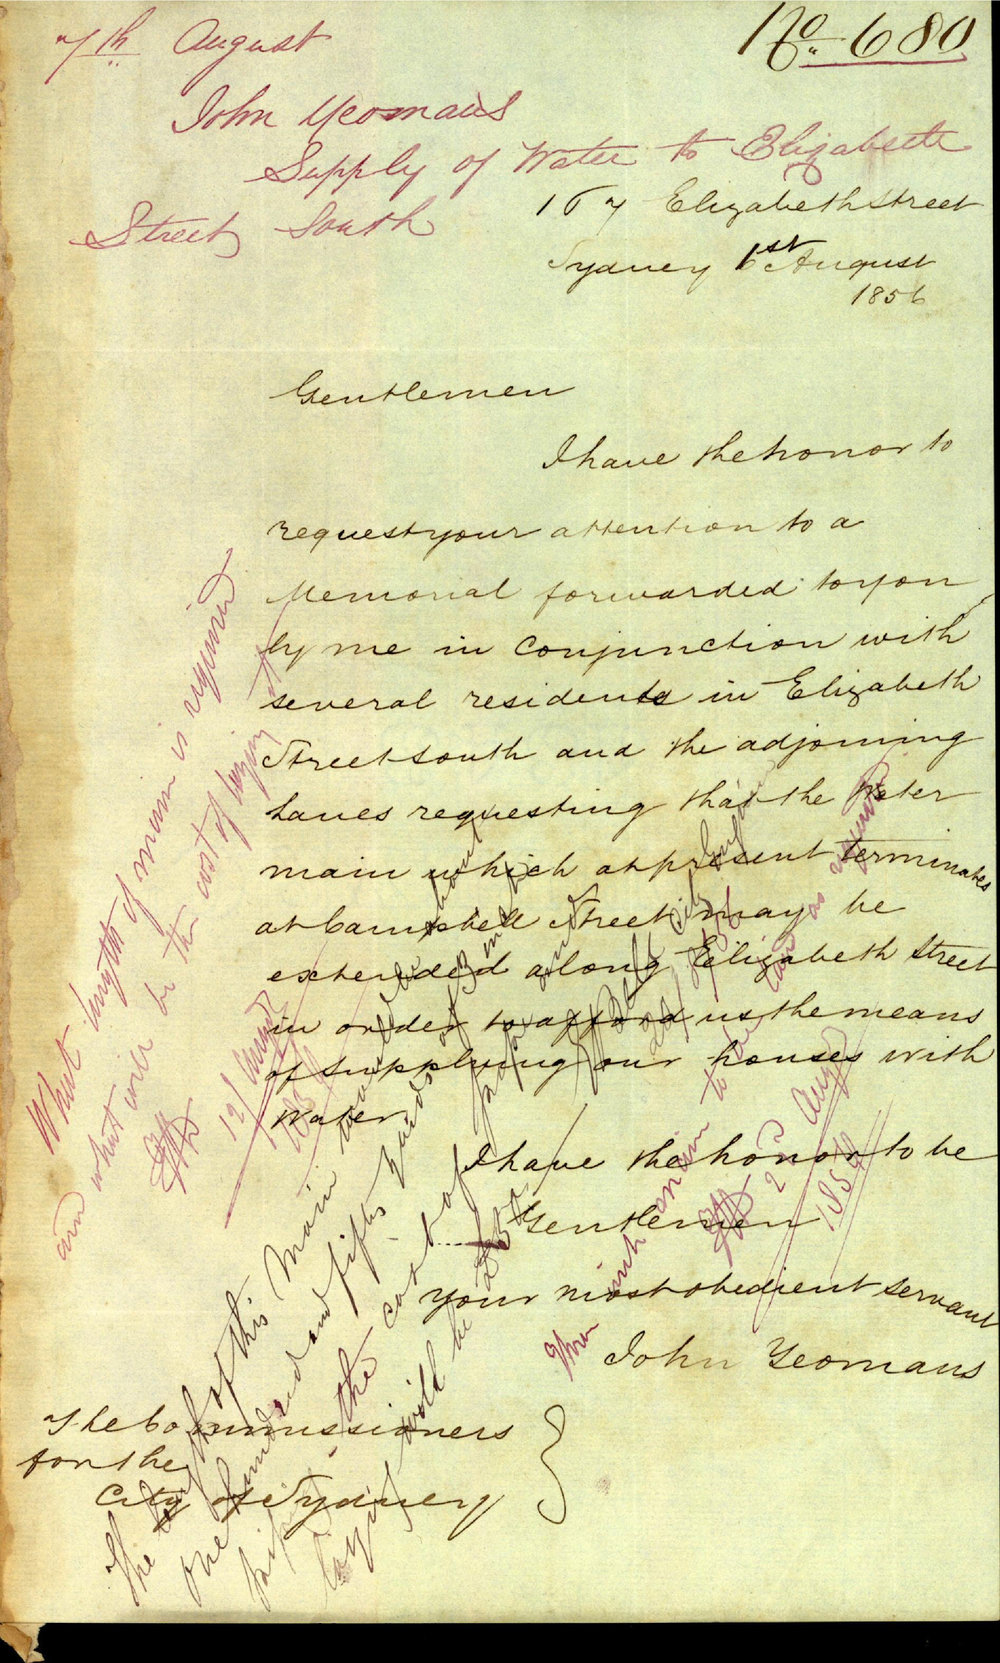 7th August
No. 680
John Yeomans
Supply of Water to Elizabeth
Street South
167 Elizabeth Street
Sydney 1st August
1856
Gentlemen
I have the honor to
request your attention to a
Memorial forwarded to you
by me in conjunction with
several residents in Elizabeth
Street south and the adjoining
lanes requesting that the Water
main which at present terminates
at Campbell Street may be
extended along Elizabeth Street
in order to afford us the means
of supplying our houses with
Water.
I have the honor to be
Gentlemen
Your most obedient servant
John Yeomans
The Commissioners
for the
City of Sydney
What length of main is required
and what will be the cost of laying it
12/ August
The length of this Main would be about
one hundred and fifty yards of 3 inch
pipe the cost of pipe and
laying will be £85
Three inch main to be laid as
2nd August
1856